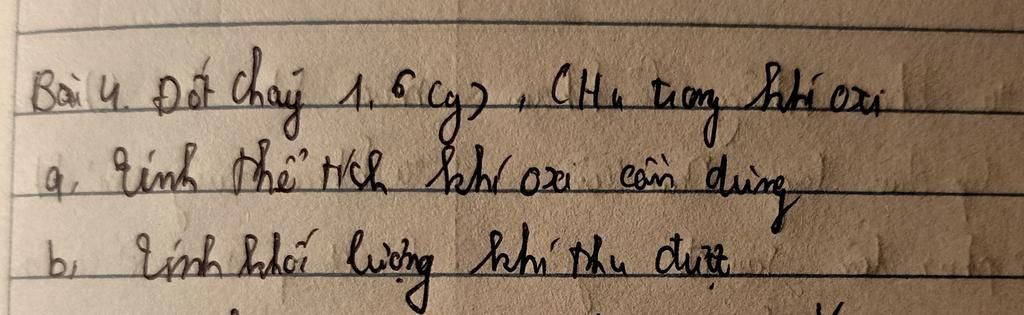 Bài 4. Đốt cháy 1,6 (g), CH4 trong khí oxi
a, tính thể tích khí oxi cần dùng
b, tính khối lượng khí thu được